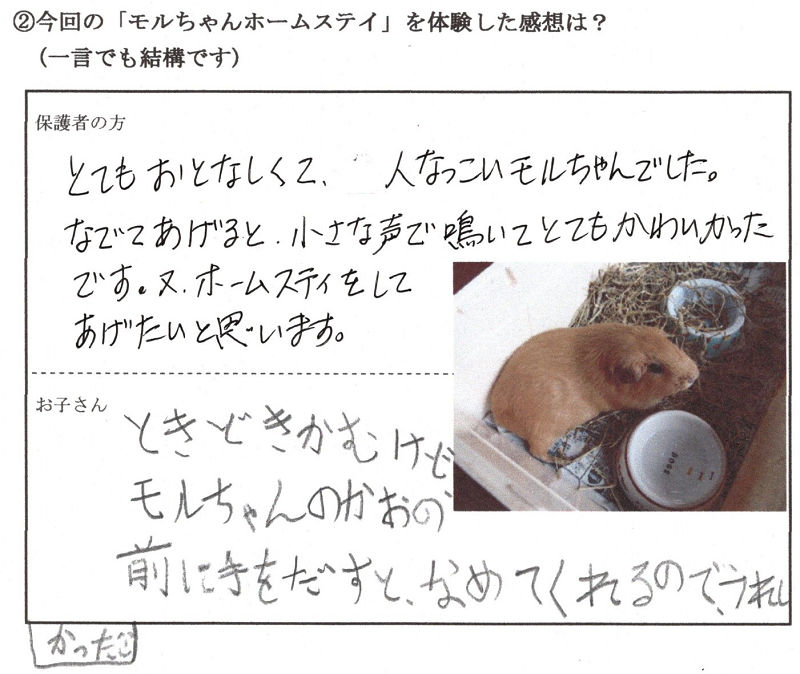 ②今回の「モルちゃんホームステイ」を体験した感想は？
（一言でも結構です）
保護者の方
とてもおとなしくて、人なつこいモルちゃんでした。
なでてあげると、小さな声で鳴いてとてもかわいかった
です。又、ホームスティをして
あげたいと思います。
お子さん
ときどきかむけど
モルちゃんのかおの
前に手をだすと、なめてくれるので、うれし
かった。